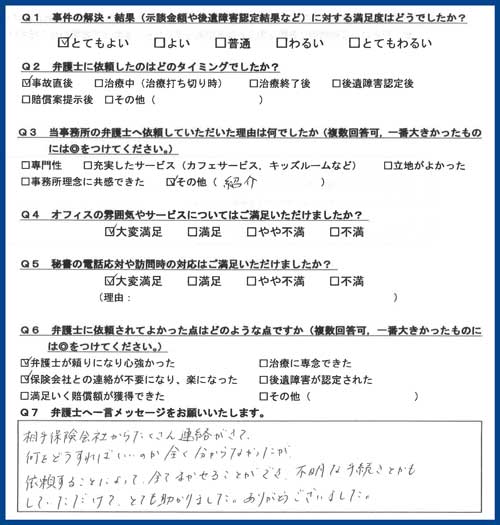 Q1　事件の解決・結果（示談金額や後遺障害認定結果など）に対する満足度はどうでしたか？
☑とてもよい　□よい　□普通　□わるい　□とてもわるい
Q2　弁護士に依頼したのはどのタイミングでしたか？
☑事故直後　□治療中（治療打ち切り時）　□治療終了後　□後遺障害認定後
□賠償案提示後　□その他（　　　　　　）
Q3　当事務所の弁護士へ依頼していただいた理由は何でしたか（複数回答可，一番大きかったもの
には◎をつけてください。）
□専門性　□充実したサービス（カフェサービス，キッズルームなど）　□立地がよかった
□事務所理念に共感できた　☑その他（ 紹介　　　　　　）
Q4　オフィスの雰囲気やサービスについてはご満足いただけましたか？
☑大変満足　□満足　□やや不満　□不満
Q5　秘書の電話応対や訪問時の対応はご満足いただけましたか？
☑大変満足　□満足　□やや不満　□不満
（理由：　　　　　　　　　　　　　　　　）
Q6　弁護士に依頼されてよかった点はどのような点ですか（複数回答可，一番大きかったものに
は◎をつけてください。）
☑弁護士が頼りになり心強かった　□治療に専念できた
☑保険会社との連絡が不要になり、楽になった　□後遺障害が認定された
□満足いく賠償額が獲得できた　□その他（　　　　　　　　）
Q7　弁護士へ一言メッセージをお願いいたします。
相手保険会社からたくさん連絡がきて、
何をどうすればいいのか全く分からなかったが
依頼することによって、全てまかせることができ、不明な手続きとかも
していただけて、とても助かりました。ありがとうございました。